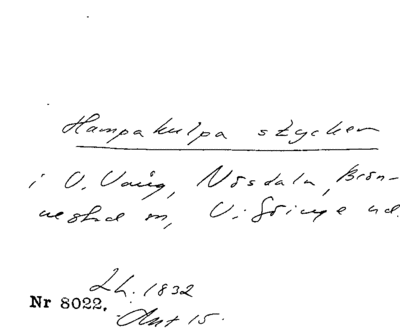 Hampakulpa stycken
i V. Vång, Nösdala, Brön-
nestad m, V. Göinge hd.
L.h. 1832
Nr 8022.
Ant 15.